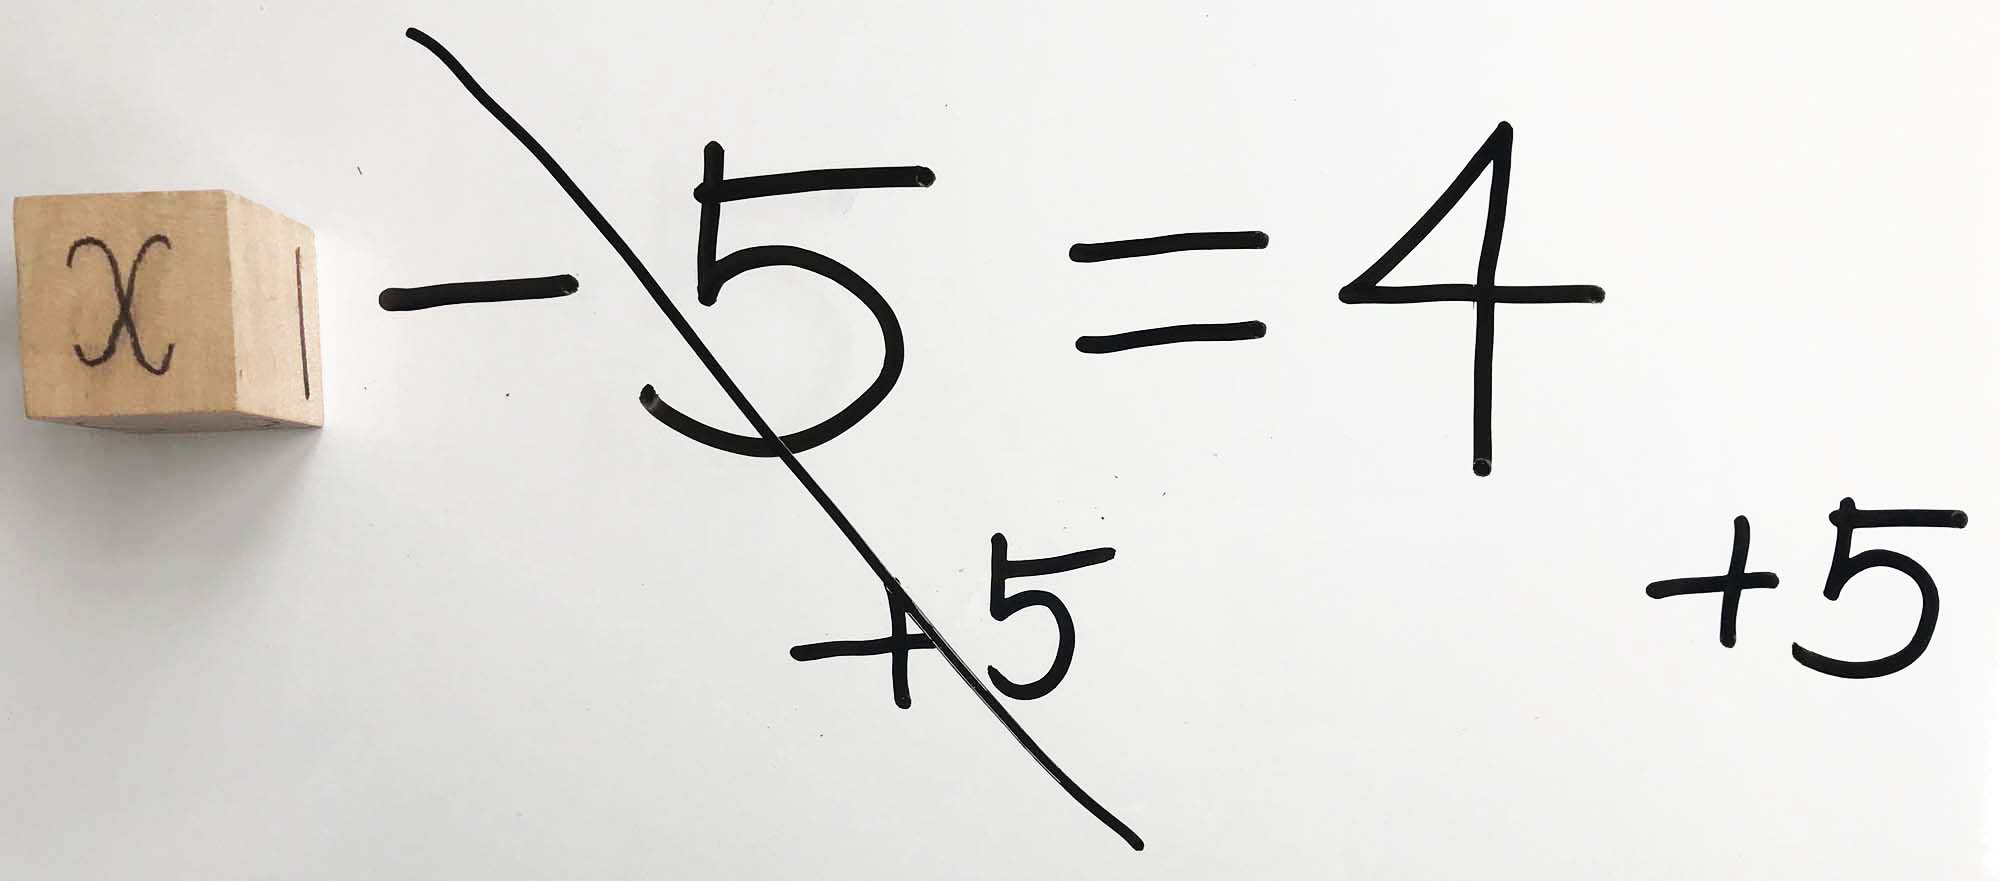 x - 5 = 4
+5 +5